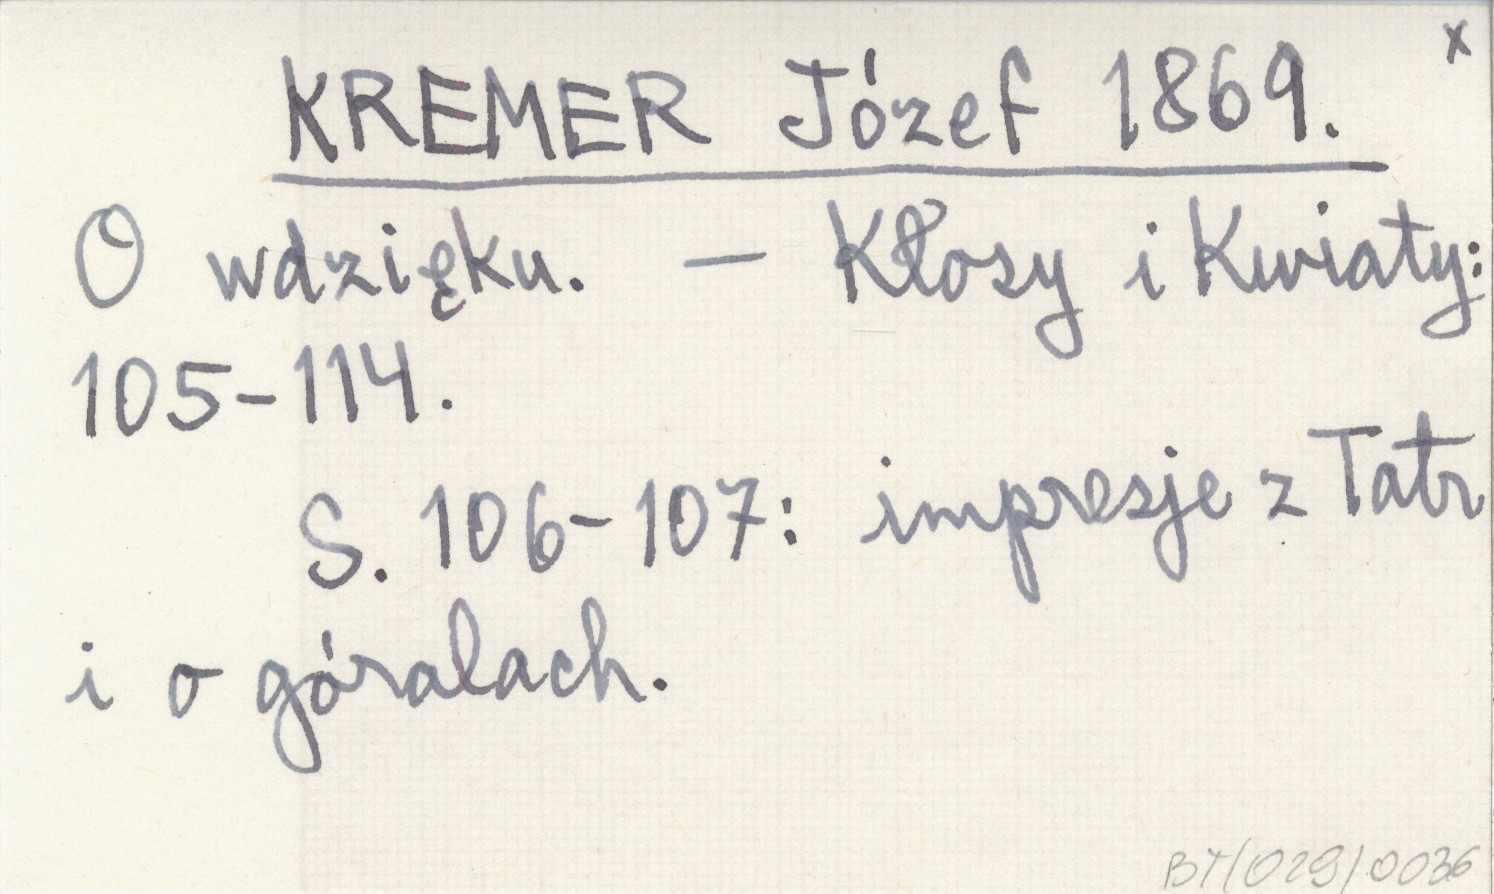 x
KREMER Józef 1869.
O wdzięku. – Kłosy i Kwiaty:
105-114.
S. 106-107: impresje z Tatr
i o góralach.
BT/029/0036